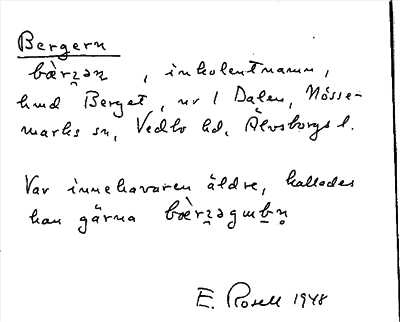 Bergern
bærʐən, inkolentnamn,
hmd Berget, nr 1 Dalen, Nösse-
marks sn, Vedbo hd, Älvsborgs l.
Var innehavaren äldre, kallades
han gärna bærʐəgmb̥n̥
E. Rosell 1948